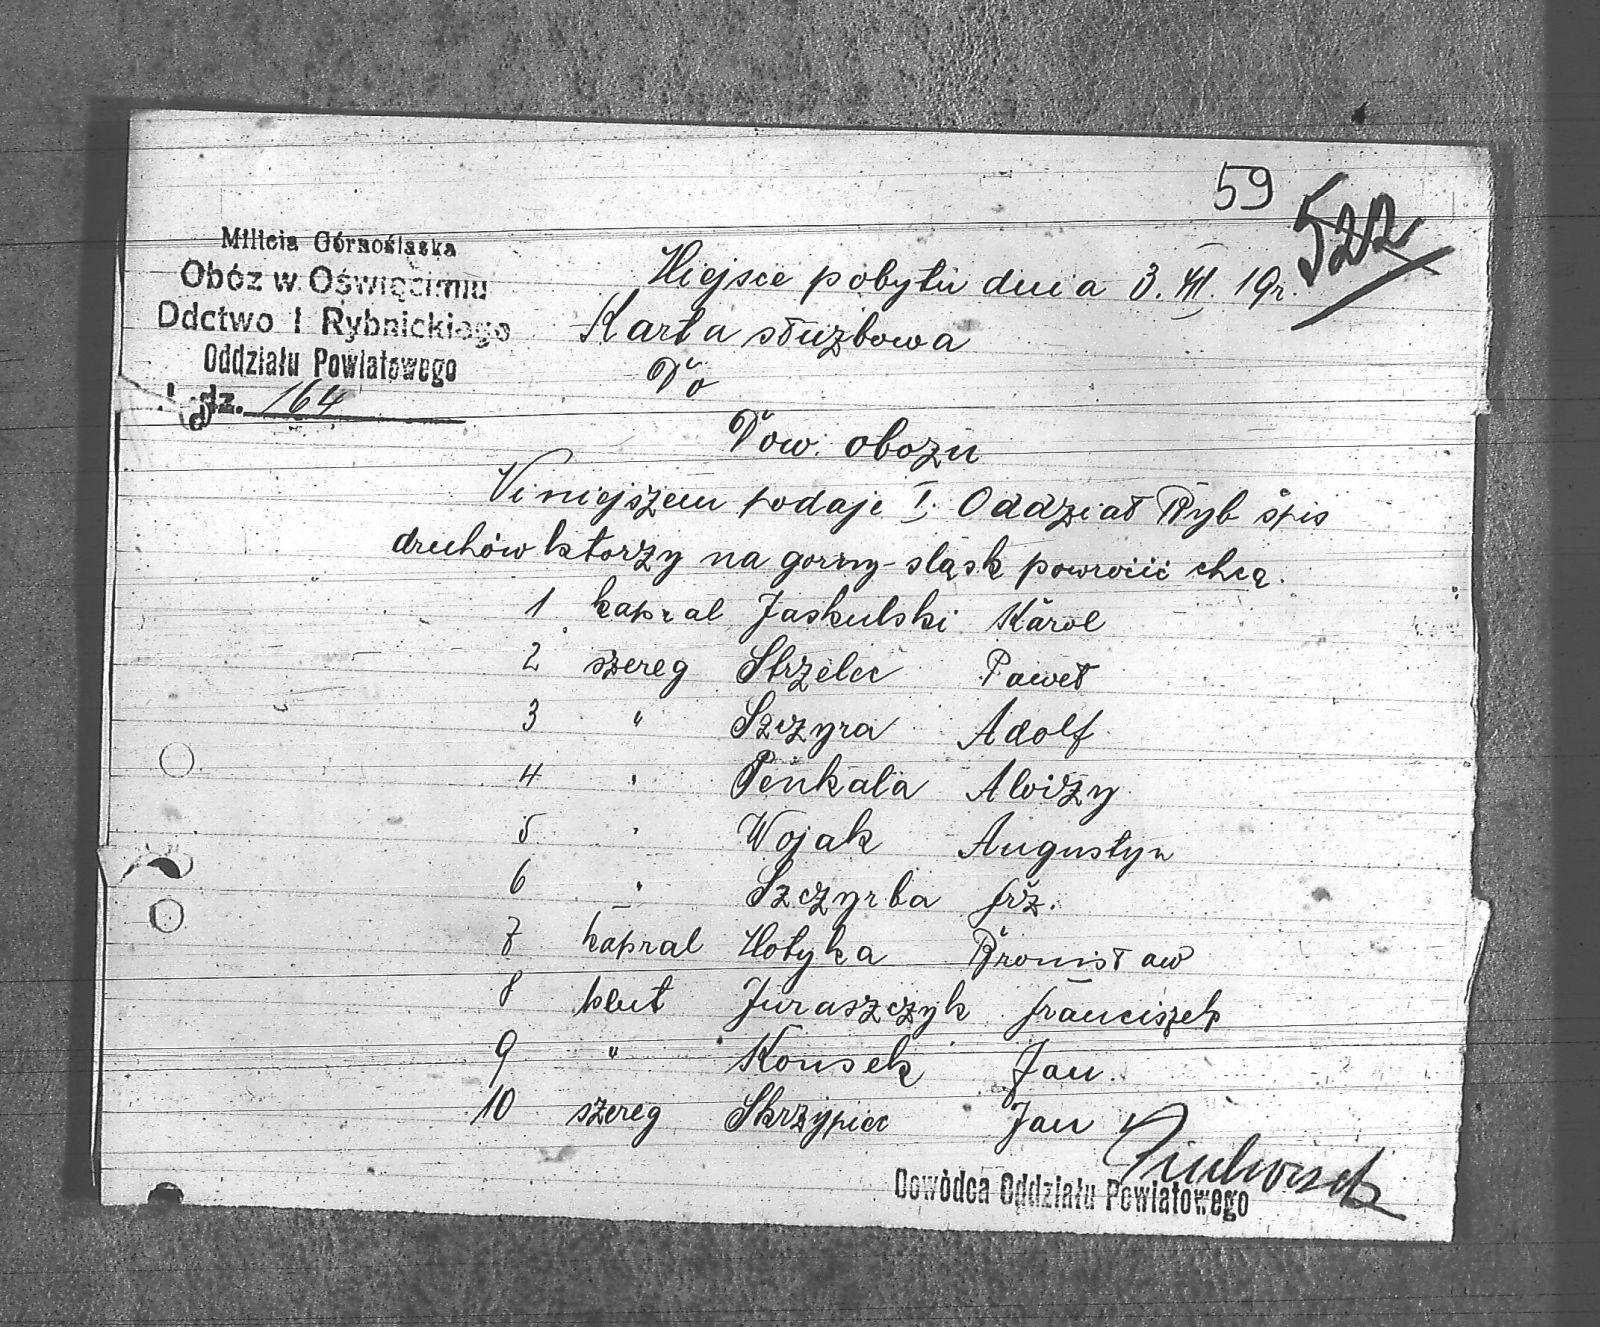 59 522
Milicja Górnośląska
Obóz w Oświęcimiu
Ddctwo I Rybnickiego
Oddziału Powiatowego
L. dz. 164
Miejsce pobytu dnia 3. VII. 19r.
Karta służbowa
Do
Dow. obozu
Niniejszem podaje I. Oddział Ryb śpis
druhów ktorzy na gorny-sląsk powrocić chcą.
1 kapral Jaskulski Karol
2 szereg Strzelec Paweł
3 " Szczyra Adolf
4 " Penkala Aloizy
5 " Wojak Augustyn
6 " Szczyrba frz.
7 kapral Motyka Bronisław
8 plut Juraszczyk franciszek
9 " Konsek Jan
10 szereg Skrzypiec Jan
Dowódca Oddziału Powiatowego